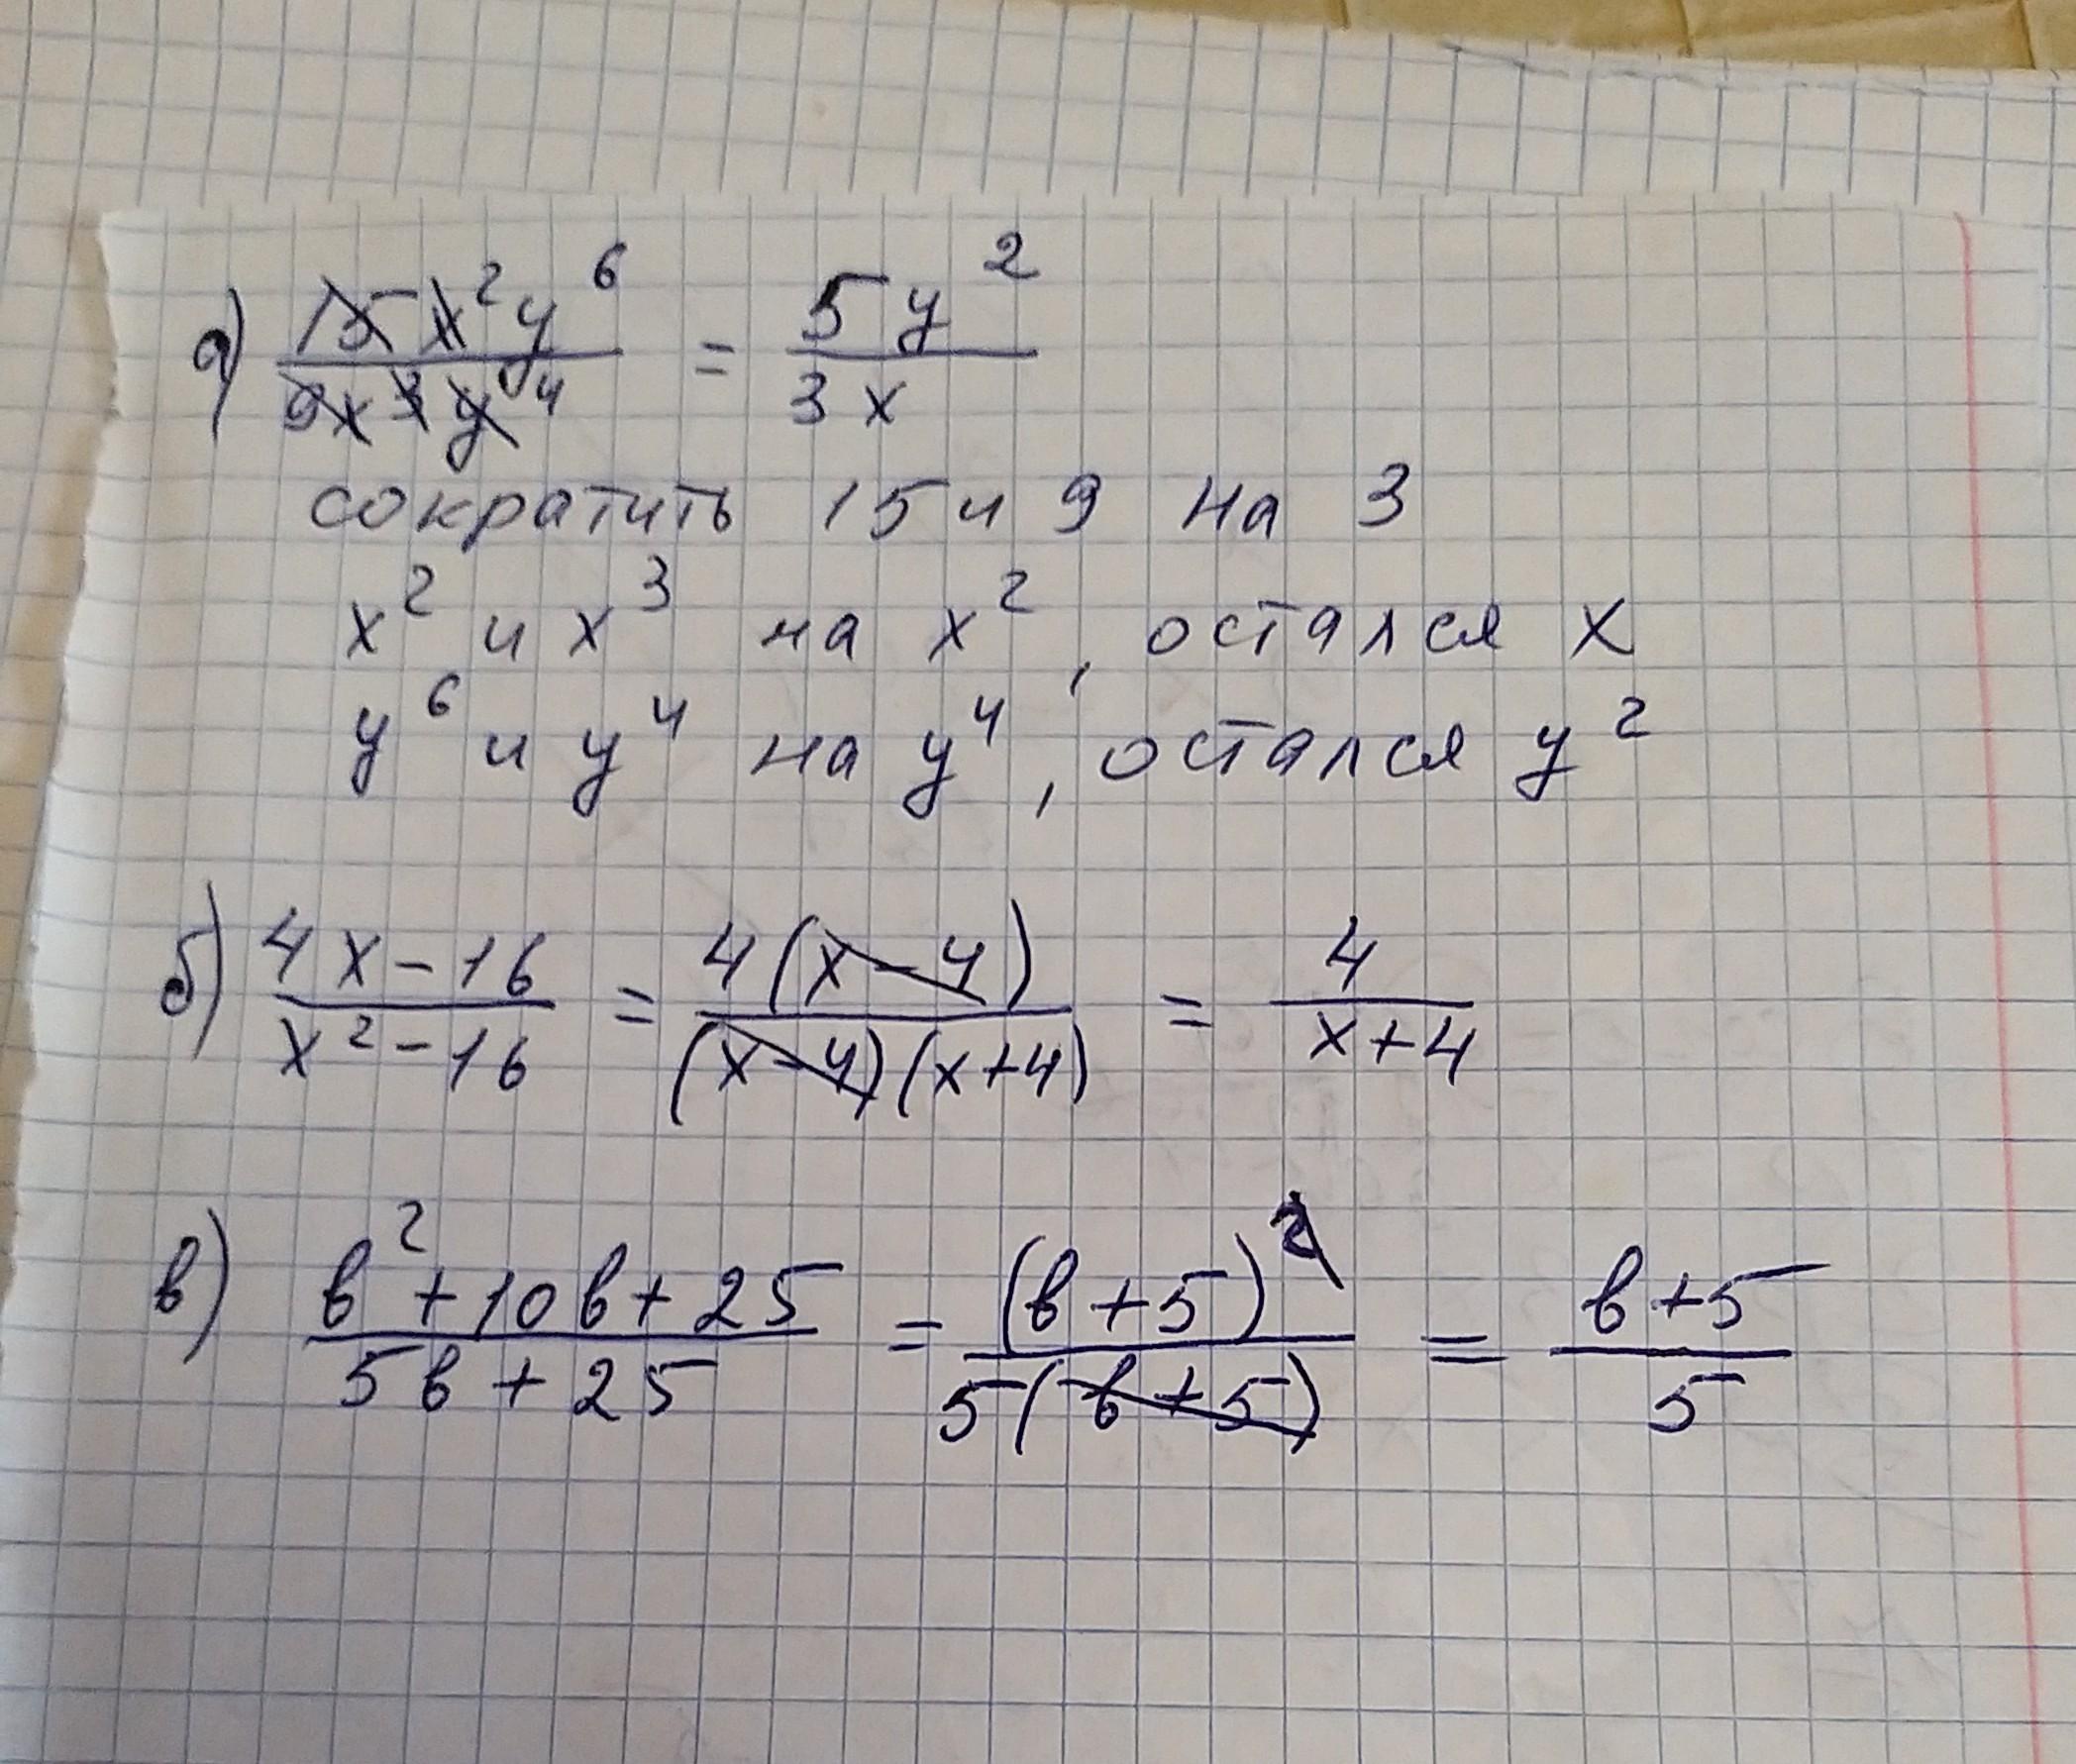 а) 15x²y⁶ / 9x³y⁴ = 5y² / 3x
сократить 15 и 9 на 3
x² и x³ на x², остался x
y⁶ и y⁴ на y⁴, остался y²
б) 4x-16 / x²-16 = 4(x-4) / (x-4)(x+4) = 4 / x+4
в) в²+10в+25 / 5в+25 = (в+5)² / 5(в+5) = в+5 / 5